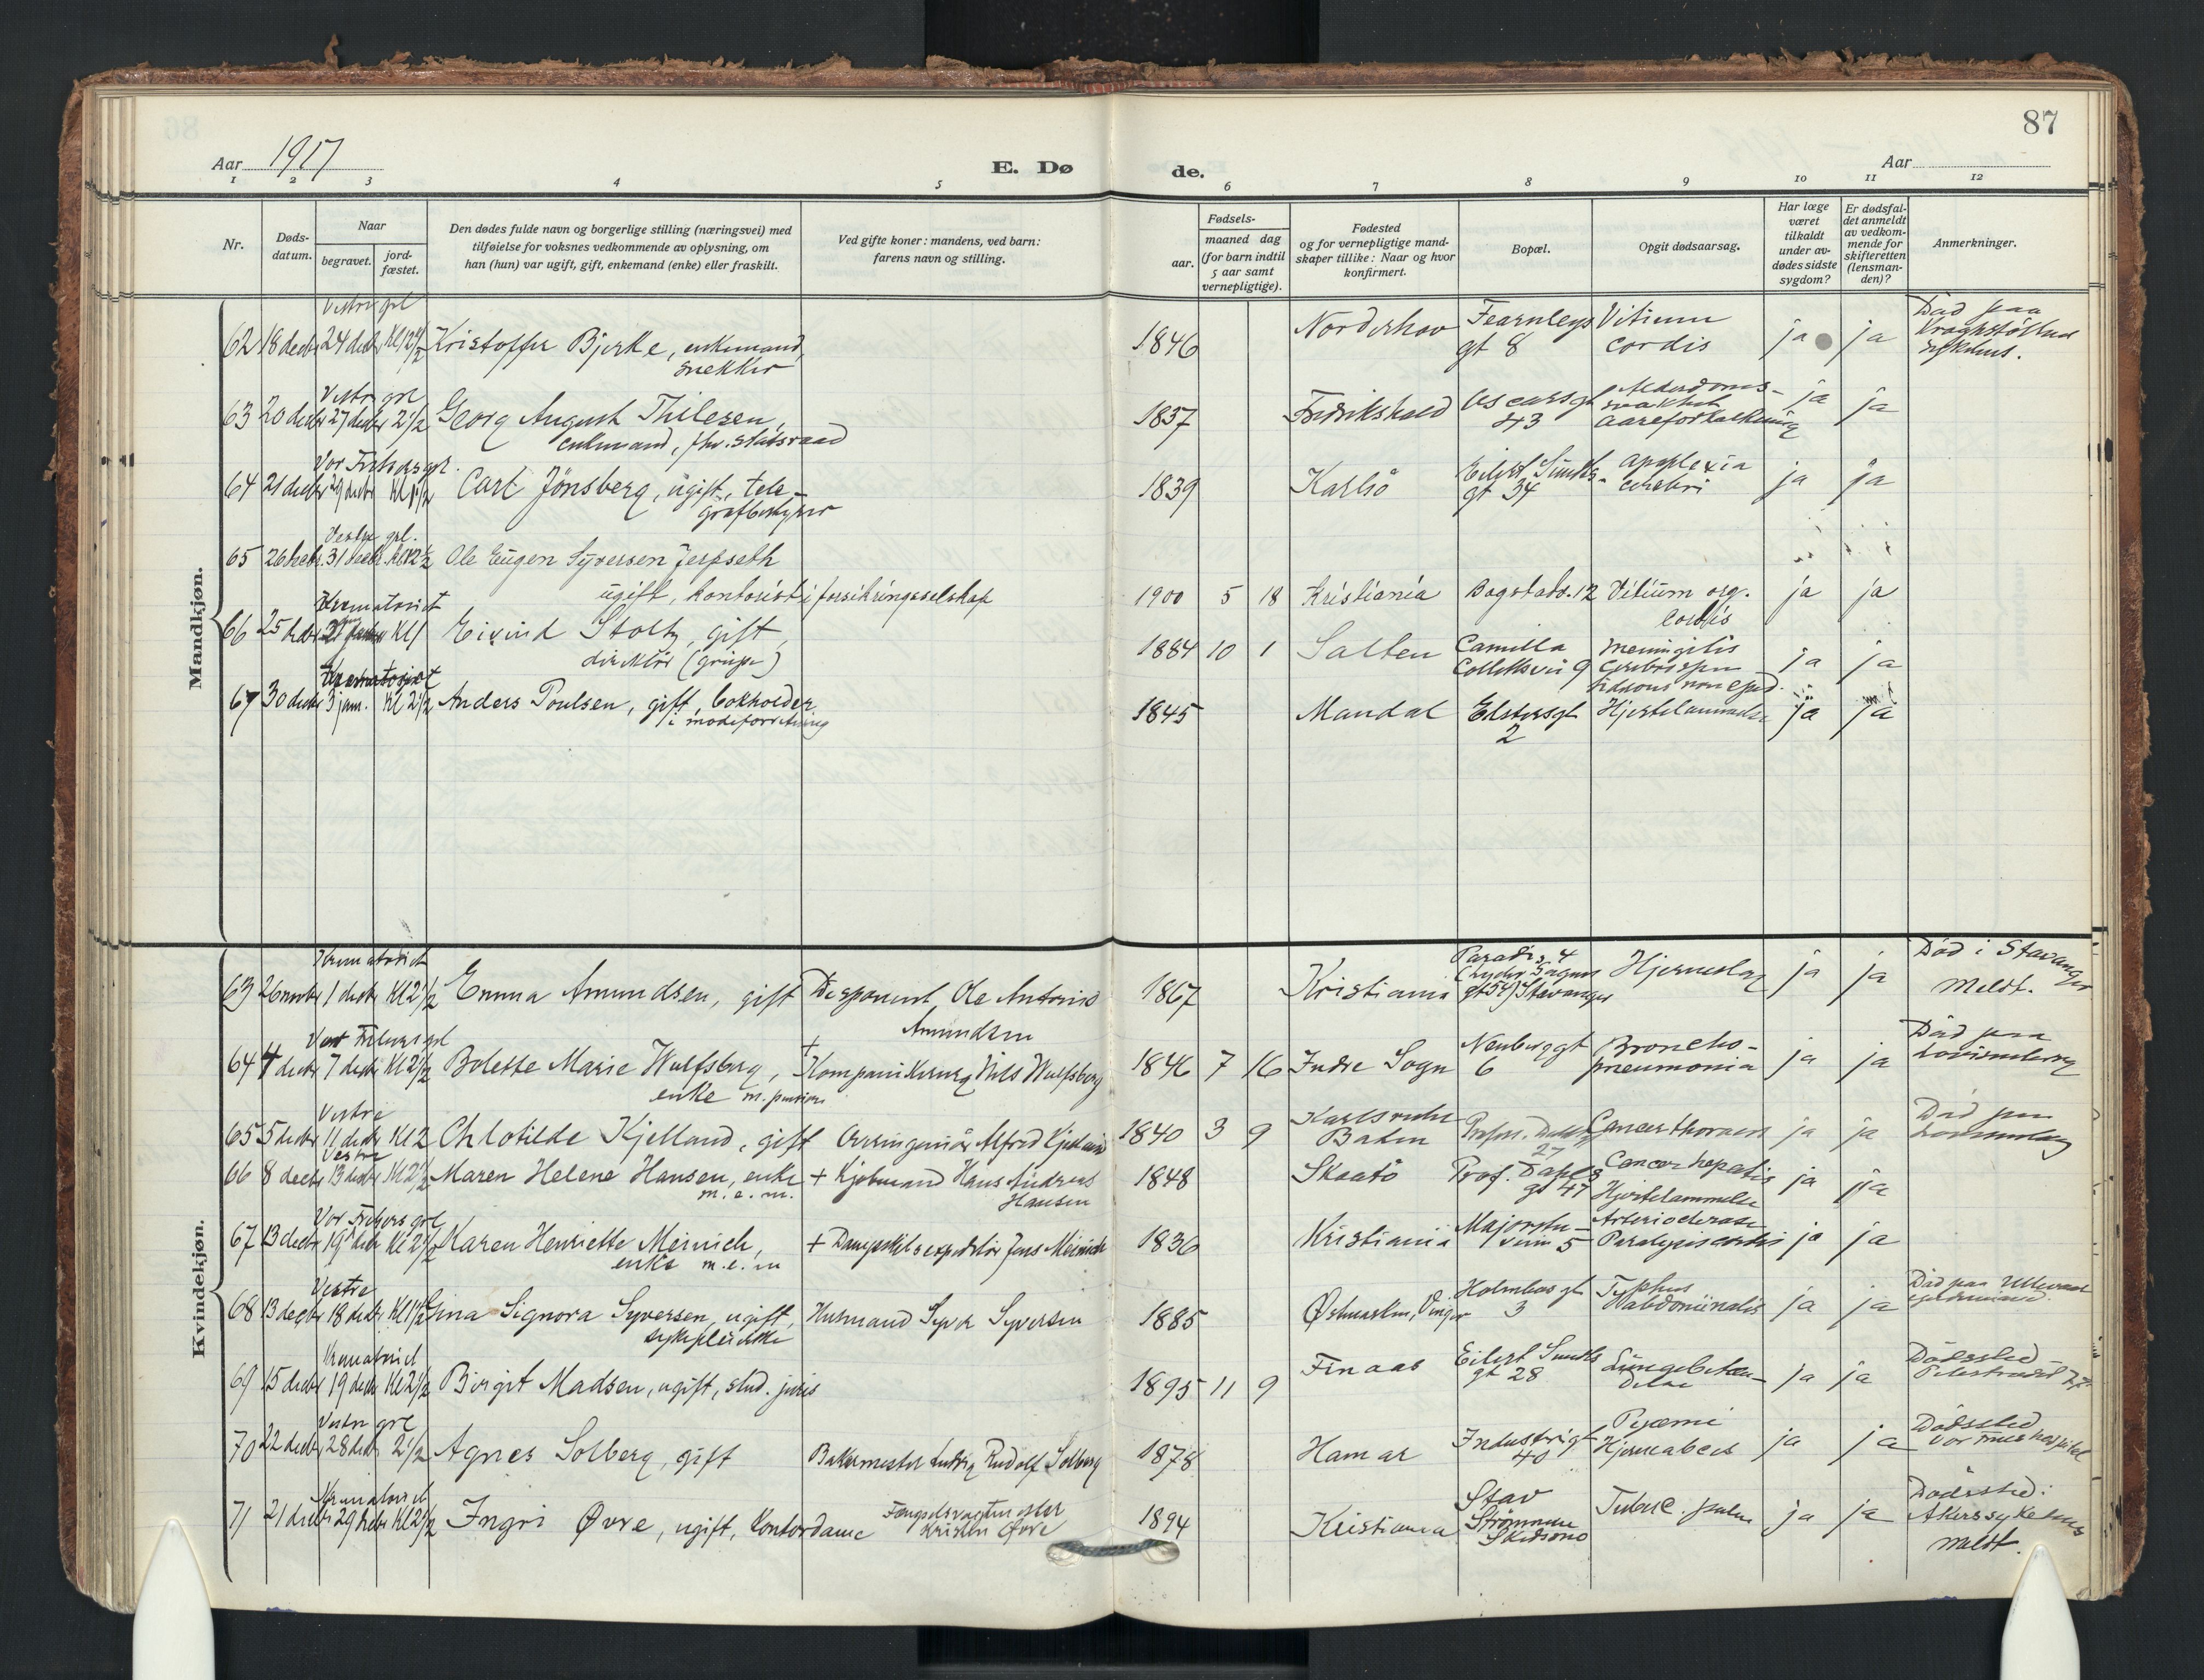 87
Aar 1917
E. Dø
de.
Aar
1 2 3 4 5 6 7 8 9 10 11 12
Nr.
Døds-
datum.
Naar
begravet.
jord-
fæstet.
Den dødes fulde navn og borgerlige stilling (næringsvei) med
tilføielse for voksnes vedkommende av oplysning, om
han (hun) var ugift, gift, enkemand (enke) eller fraskilt.
Ved gifte koner: mandens, ved barn:
farens navn og stilling.
Fødsels-
aar.
maaned dag
(for barn indtil
5 aar samt
vernepligtige).
Fødested
og for vernepligtige mand-
skaper tillike: Naar og hvor
konfirmert.
Bopæl.
Opgit dødsaarsag.
Har læge
været
tilkaldt
under av-
dødes sidste
sygdom?
Er dødsfal-
det anmeldt
av vedkom-
mende for
skifteretten
(lensman-
den)?
Anmerkninger.
Mandkjøn.
Vestre grl
62 18 decbr 24 decbr Kl 12 1/2 Kristoffer Bjerke, enkemand,
snekker
1846 Norderhov Fearnleys
gt 8
Vitium
cordis
ja ja
Död paa
Kragstöttens
sykehus.
Vestre grl
63 20 decbr 27 decbr 2 1/2 Georg August Thilesen,
enkemand, fhv. statsraad
1837 Fredrikshald Oscarsgt
43
Alderdoms-
svakhet
aareforkalkning
ja ja
Vor Frelsers grl.
64 21 decbr 29 decbr Kl 1 1/2 Carl Jönsberg, ugift, tele-
grafbestyrer
1839 Karlsö Eilert Sundts-
gt 34
apoplexia
cerebri
ja ja
Vestre grl.
65 26 decbr. 31 decbr. Kl 12 1/2 Ole Eugen Syversen Jerpseth
ugift, kontorist i forsikringsselskap
1900 5 18 Kristiania Bogstadv. 12 Vitium org.
cordis
ja ja
Krematoriet
66 25 decbr Kl 1 Eivind Stoltz, gift,
direktör (grube)
1884 10 1 Salten Camilla
Colletts vei 9
meningitis
cerebrospin
ja ja
Krematoriet
67 30 decbr 3 jan. Kl 2 1/2 Anders Poulsen, gift, bokholder
i modeforretning
1845 Mandal Elstersgt
2
Hjertelammelse
ja ja
Kvindekjøn.
Krematoriet
63 26 novbr 1 decbr Kl 2 1/2 Emma Amundsen, gift Disponent Ole Antonio
Amundsen
1867 Kristiania Paradis v. 4
gt 54) Stavanger
Hjerneslag
ja ja
Död i Stavanger
meldt.
Vor Frelsers grl
64 4 decbr 7 decbr Kl 2 1/2 Bolette Marie Wulfsberg,
enke m. pension
+
Kompanikirurg Nils Wulfsberg
1846 7 16 Indre Sogn Neuberggt
6
Broncho-
pneumonia
ja ja
Död paa
Lovisenberg
Vestre
65 5 decbr 11 decbr Kl 2 Chlotilde Kjelland, gift Overingeniör Alfred Kjelland
1840 3 9 Karlsruhe
Baden
Profess. Dahls
27
Cancer
ja ja
Död paa
Lovisenberg
Vestre
66 8 decbr 13 decbr Kl 2 1/2 Maren Helene Hansen, enke
m. e. m.
+ Kjöbmand Hans Andreas
Hansen
1848 Skaatö Prof. Dahls
gt 47
Cancer hepatis
Hjertelammelse
ja ja
Vor Frelsers grl
67 13 decbr 19 decbr Kl 2 1/2 Karen Henriette Meinich,
enke m. e. m
+ Dampskibsexpeditör Jens Meinich
1836 Kristiania Majorstu-
veien 5
Arteriosclerose
Paralysis cordis
ja ja
Vestre
68 13 decbr 18 decbr Kl 1 1/2 Gina Signora Syversen, ugift,
sykepleierske
Husmand Syver Syversen
1885 Østmarken, Vinger Holmboes gt
3
Typhus
abdominalis
ja ja
Död paa Ullevaal
Krematoriet
69 15 decbr 19 decbr Kl 2 1/2 Birgit Madsen, ugift, stud. juris
1895 11 9 Finaas Eilert Sundts
gt 28
Lungebeten-
delse
ja ja
Dödssted
Pilestrædet
Vestre grl
70 22 decbr 28 decbr 2 1/2 Agnes Solberg, gift Bakermester Ludvig Rudolf Solberg
1878 Hamar Industrigt
40
Pyæmi
Hjerneabces
ja ja
Dödssted
Vor Frues hospital
Krematoriet
71 21 decbr 29 decbr Kl 2 1/2 Ingri Øvre, ugift, kontordame Fængselsvagtmester
Kristen Øvre
1894 Kristiania Stav
Strömmen
Skedsmo
Tuberc. pulm
ja ja
Dödssted:
Akers sykehus
meldt.